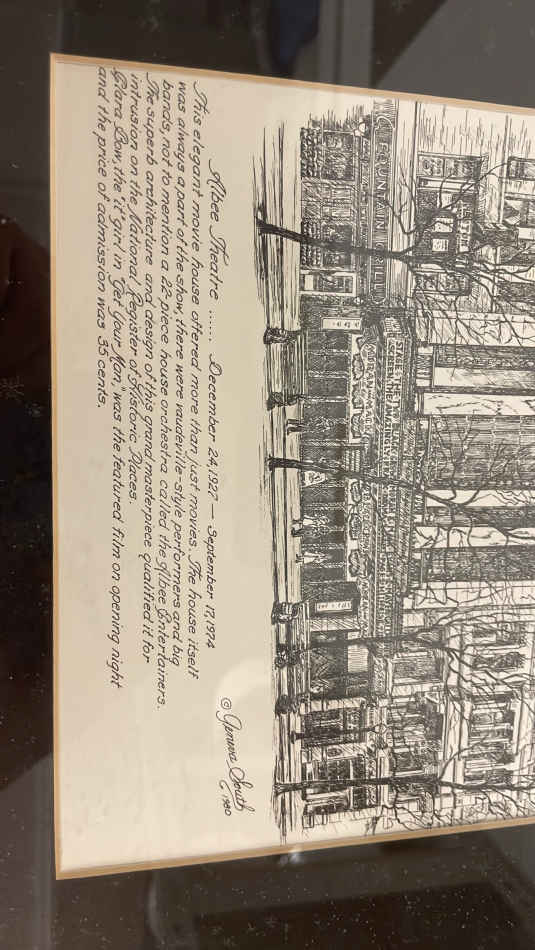 FOUNTAIN
Albee Theatre ..... December 24, 1927 — September 17, 1974
This elegant movie house offered more than just movies. The house itself
was always a part of the show, there were vaudeville-style performers and big
bands, not to mention a 22-piece house orchestra called the Albee Entertainers.
The superb architecture and design of this grand masterpiece qualified it for
intrusion on the National Register of Historic Places.
Clara Bow, the "it" girl in "Get Your Man," was the featured film on opening night
and the price of admission was 35 cents.
© Geneva South
1980